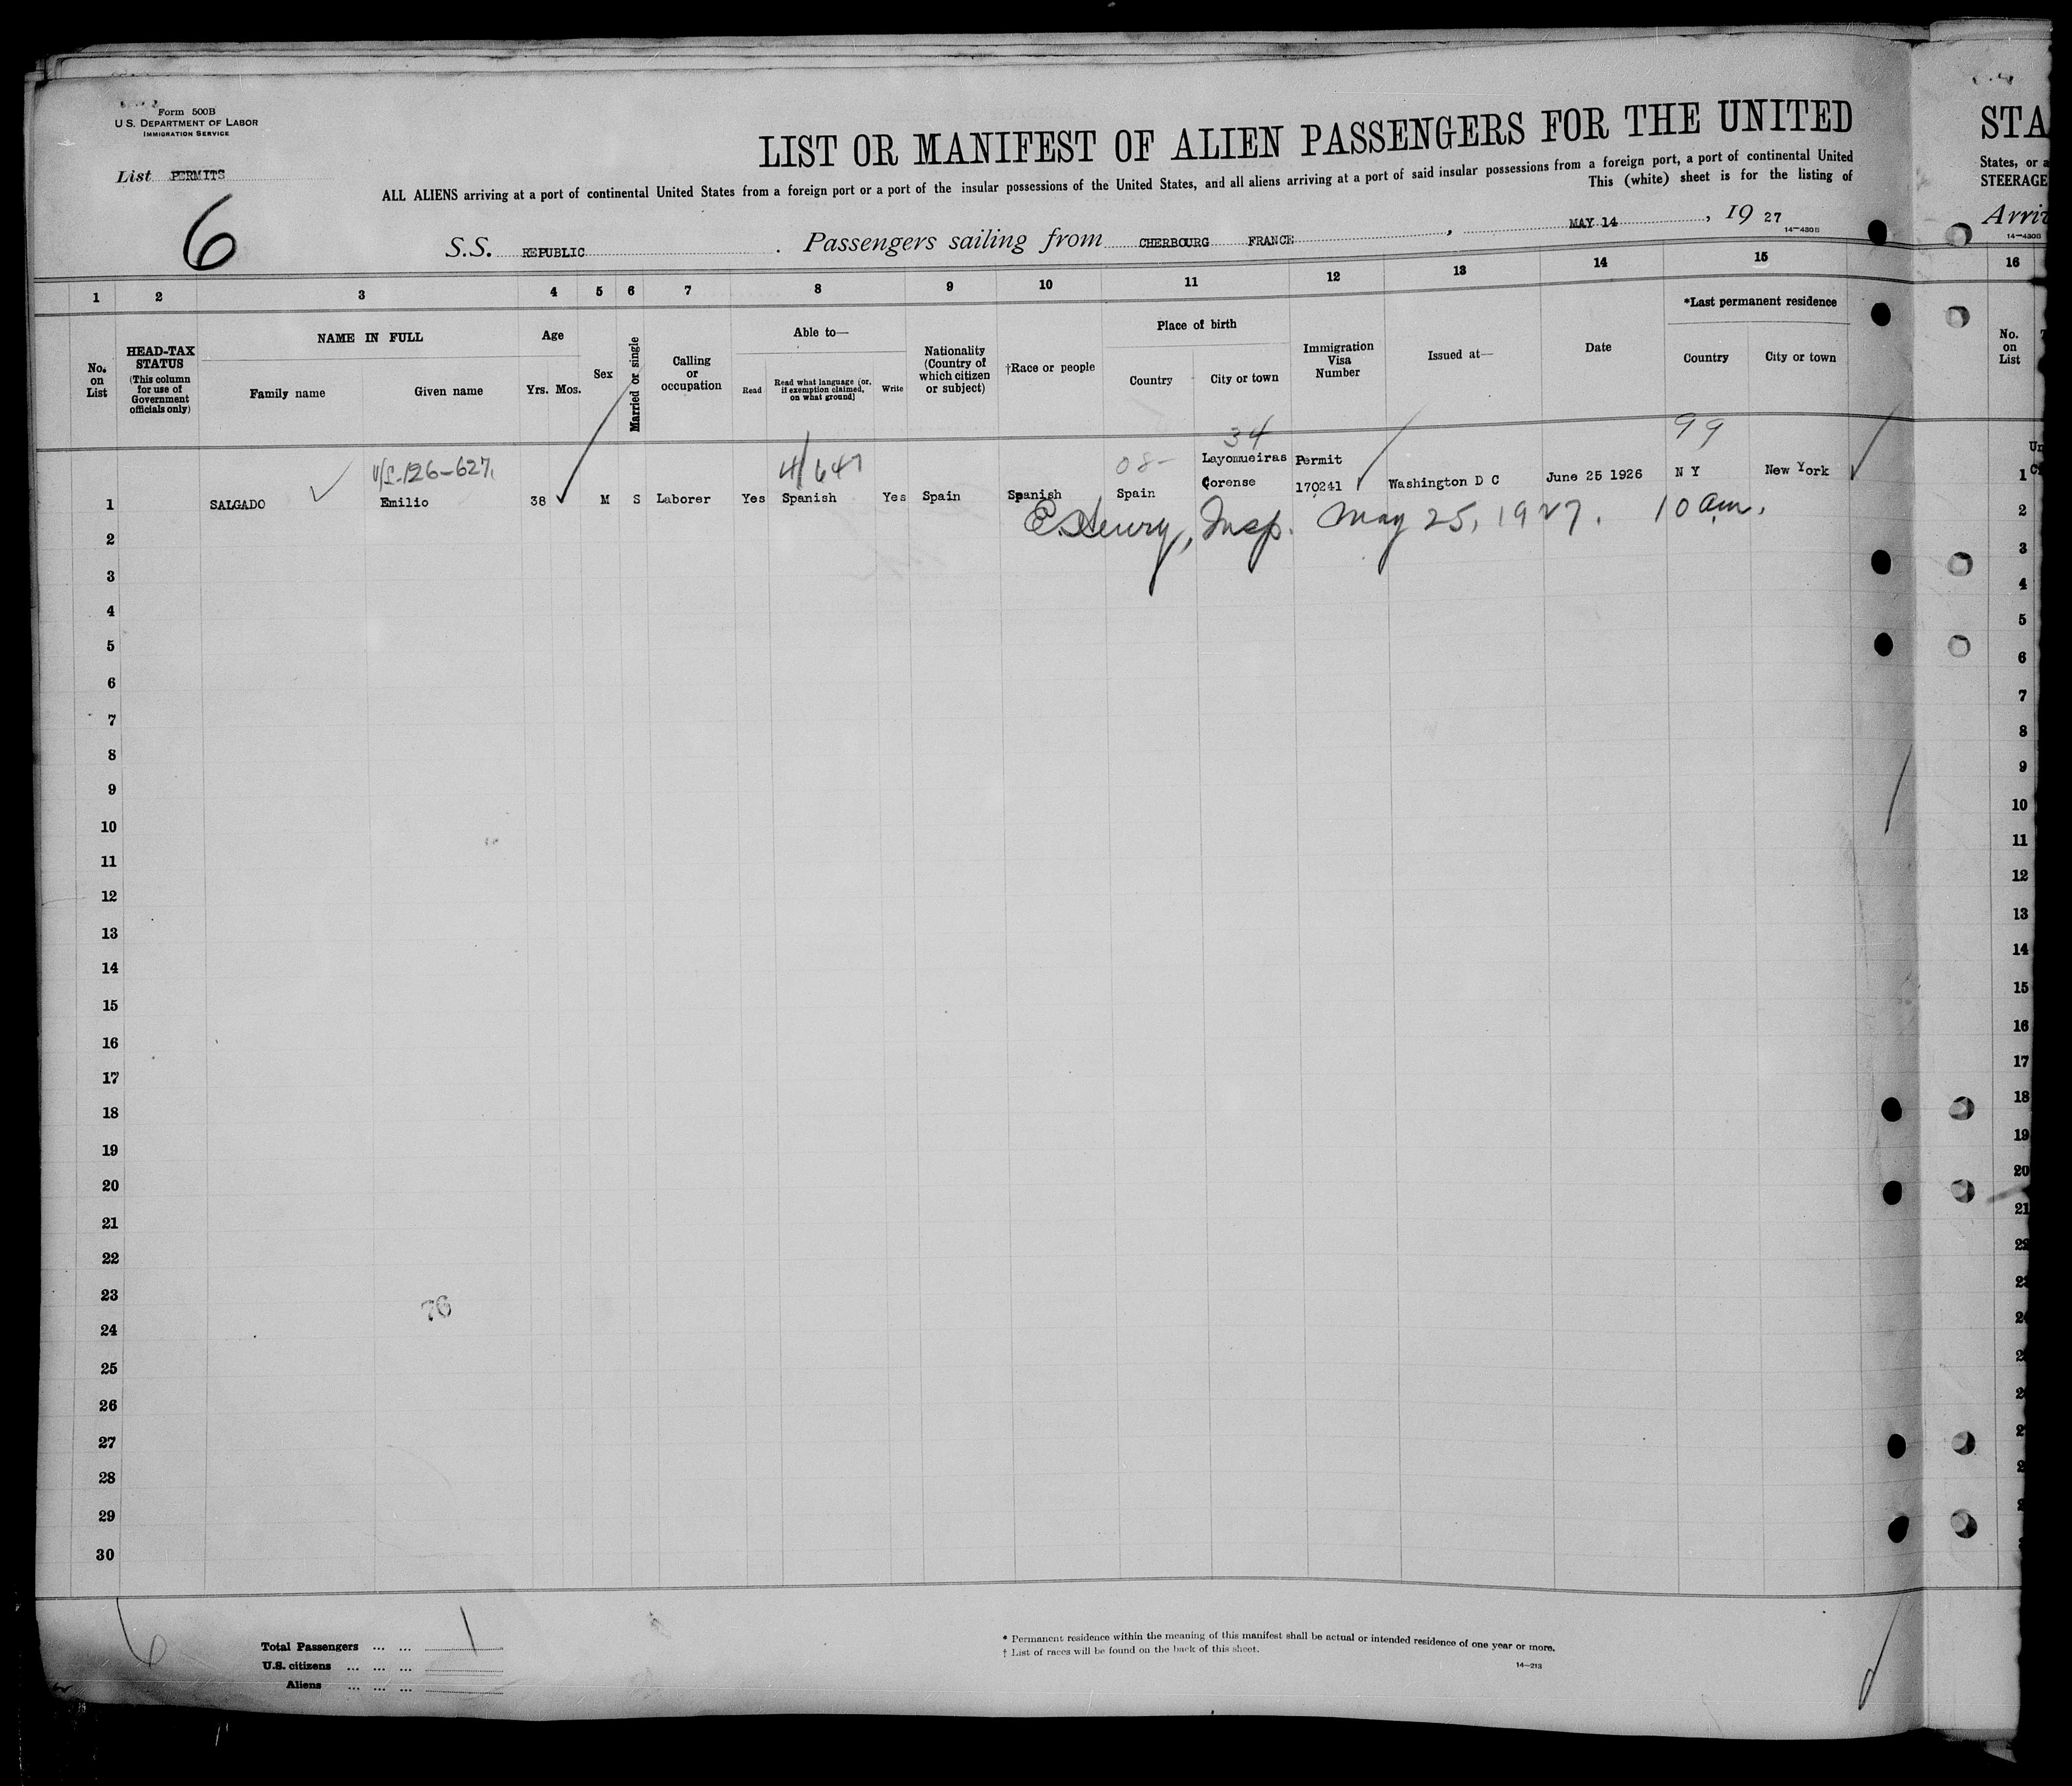 Form 500B
U.S. DEPARTMENT OF LABOR
IMMIGRATION SERVICE
List PERMITS
6
LIST OR MANIFEST OF ALIEN PASSENGERS FOR THE UNITED
ALL ALIENS arriving at a port of continental United States from a foreign port or a port of the insular possessions of the United States, and all aliens arriving at a port of said insular possessions from a foreign port, a port of continental United
This (white) sheet is for the listing of
S.S. REPUBLIC. Passengers sailing from CHERBOURG FRANCE, MAY 14, 19 27
14-480B
1 2 3 4 5 6 7 8 9 10 11 12 13 14 15
No. on List
HEAD-TAX STATUS (This column for use of Government officials only)
NAME IN FULL
Family name Given name
Age
Yrs. Mos.
Sex
Married or single
Calling or occupation
Able to—
Read
Read what language (or, if exemption claimed, on what ground)
Write
Nationality (Country of which citizen or subject)
†Race or people
Place of birth
Country City or town
Immigration Visa Number
Issued at—
Date
*Last permanent residence
Country City or town
126-627 4/647 08- 34 99
1 SALGADO Emilio 38 M S Laborer Yes Spanish Yes Spain Spanish Spain Layomueiras Corense Permit 170241 Washington D C June 25 1926 N Y New York
E. Henry, Insp. May 25, 1927. 10 am.
2
3
4
5
6
7
8
9
10
11
12
13
14
15
16
17
18
19
20
21
22
23
76
24
25
26
27
28
29
30
6
Total Passengers ... ... 1
U.S. citizens ... ... ...
Aliens ... ... ...
* Permanent residence within the meaning of this manifest shall be actual or intended residence of one year or more.
† List of races will be found on the back of this sheet.
14-213
STA
States, or a
STEERAGE
Arriv
14-480B
16
No. on List
1
2
3
4
5
6
7
8
9
10
11
12
13
14
15
16
17
18
19
20
21
22